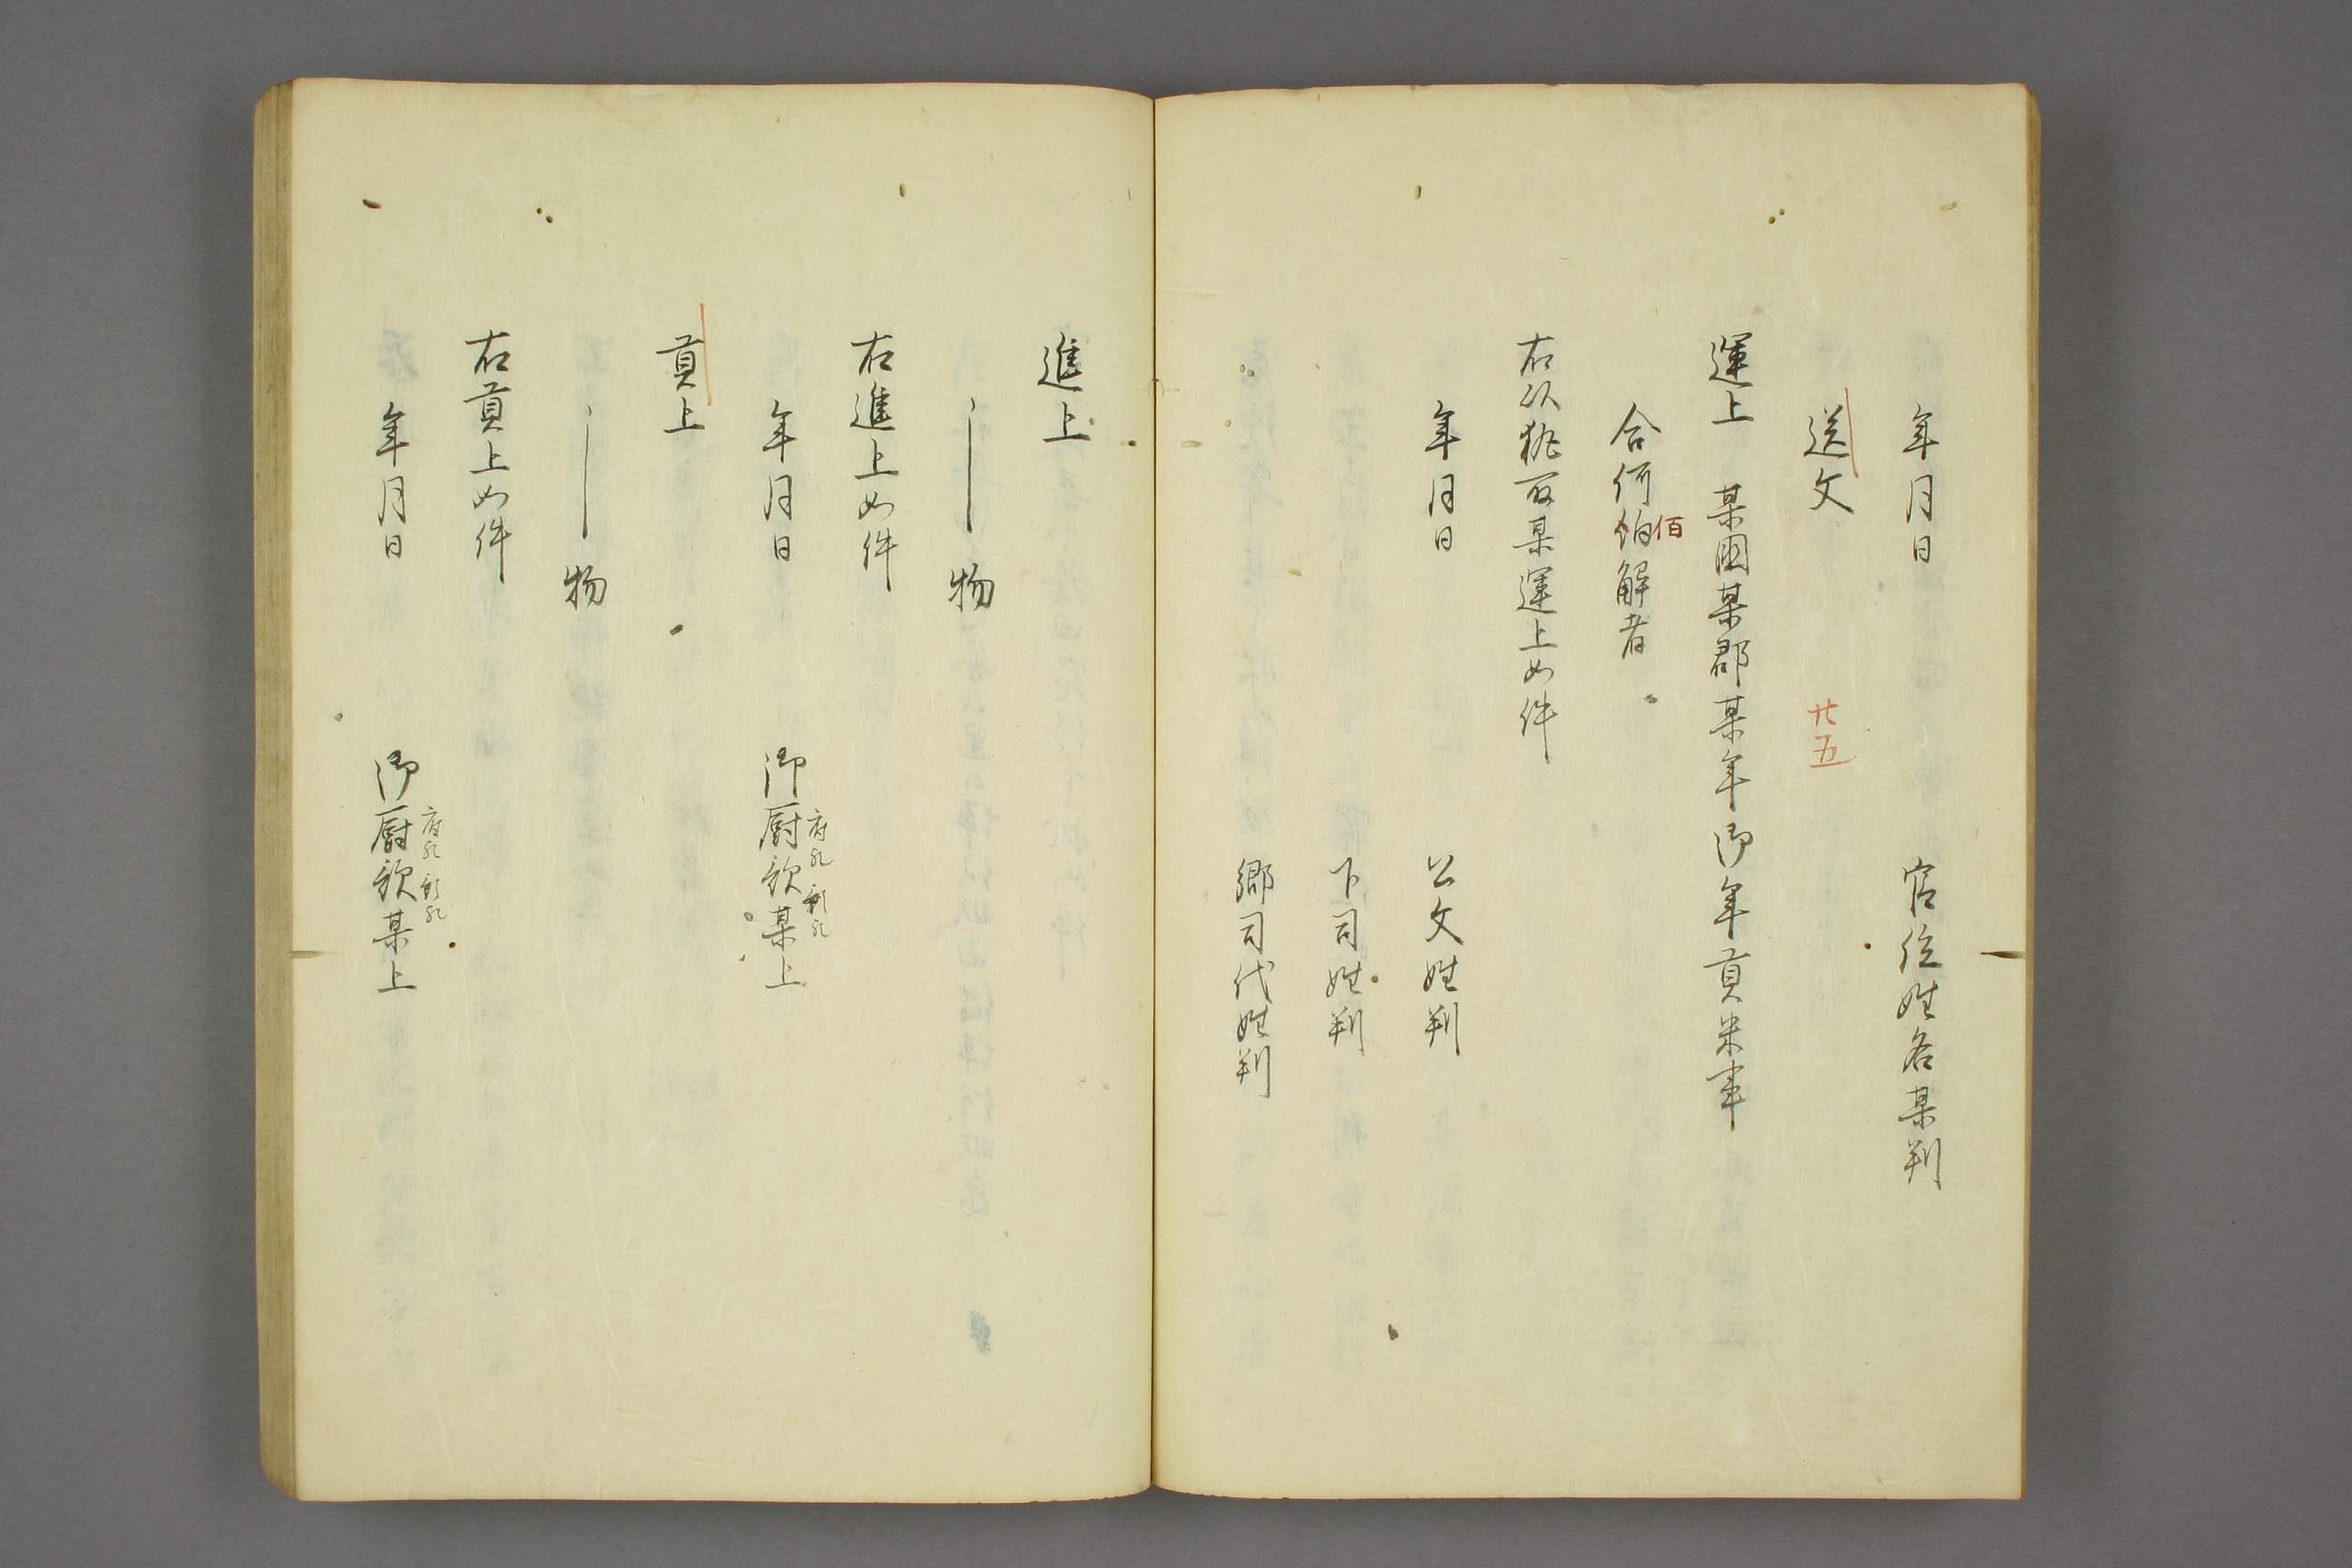 年月日　官位姓名某判
送文　廿五
運上　某國某郡某年御年貢米事
合何伯佰解者
右以梶取某運上如件
年月日　公文姓判
下司姓判
郷司代姓判
進上
物
右進上如件
年月日　御厨欤某上
貢上
物
右貢上如件
年月日　御厨欤某上